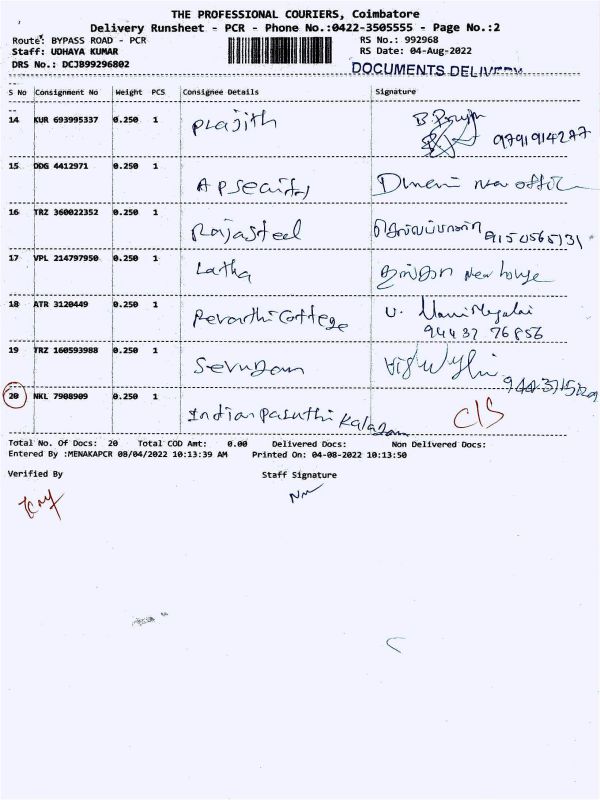 THE PROFESSIONAL COURIERS, Coimbatore
Delivery Runsheet - PCR - Phone No.:0422-3505555 - Page No.:2
Route: BYPASS ROAD - PCR RS No.: 992968
Staff: UDHAYA KUMAR RS Date: 04-Aug-2022
DRS No.: DCJB99296802 DOCUMENTS DELIVERY
S No Consignment No Weight PCS Consignee Details Signature
14 KUR 693995337 0.250 1 Prajith 9791914277
15 DDG 4412971 0.250 1 new office
16 TRZ 360022352 0.250 1 Rajasteel 9150565731
17 VPL 214797950 0.250 1 Latha new house
18 ATR 3120449 0.250 1 Revathi College
94437 76856
19 TRZ 160593988 0.250 1
20 NKL 7908909 0.250 1 Indian C/S
Total No. Of Docs: 20 Total COD Amt: 0.00 Delivered Docs: Non Delivered Docs:
Entered By :MENAKAPCR 08/04/2022 10:13:39 AM Printed On: 04-08-2022 10:13:50
Verified By Staff Signature